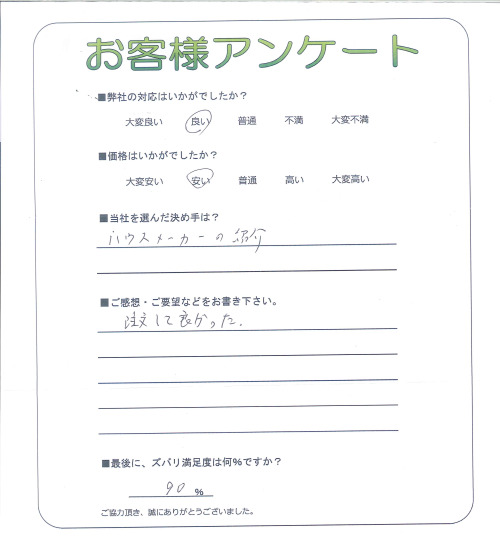 お客様アンケート
■弊社の対応はいかがでしたか？
大変良い 良い 普通 不満 大変不満
■価格はいかがでしたか？
大変安い 安い 普通 高い 大変高い
■当社を選んだ決め手は？
ハウスメーカーの紹介
■ご感想・ご要望などをお書き下さい。
注文して良かった.
■最後に、ズバリ満足度は何%ですか？
90 %
ご協力頂き、誠にありがとうございました。